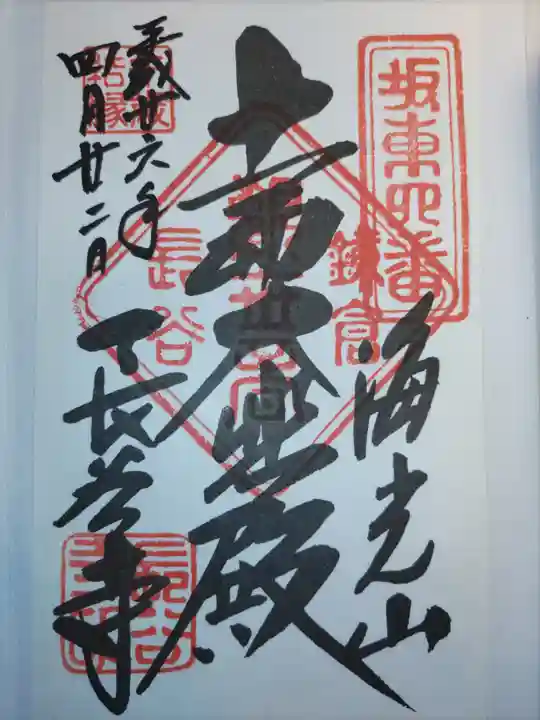 坂東四番
海光山
鎌倉
十一面大悲殿
長谷
平成廿六年
四月廿二日
長谷寺